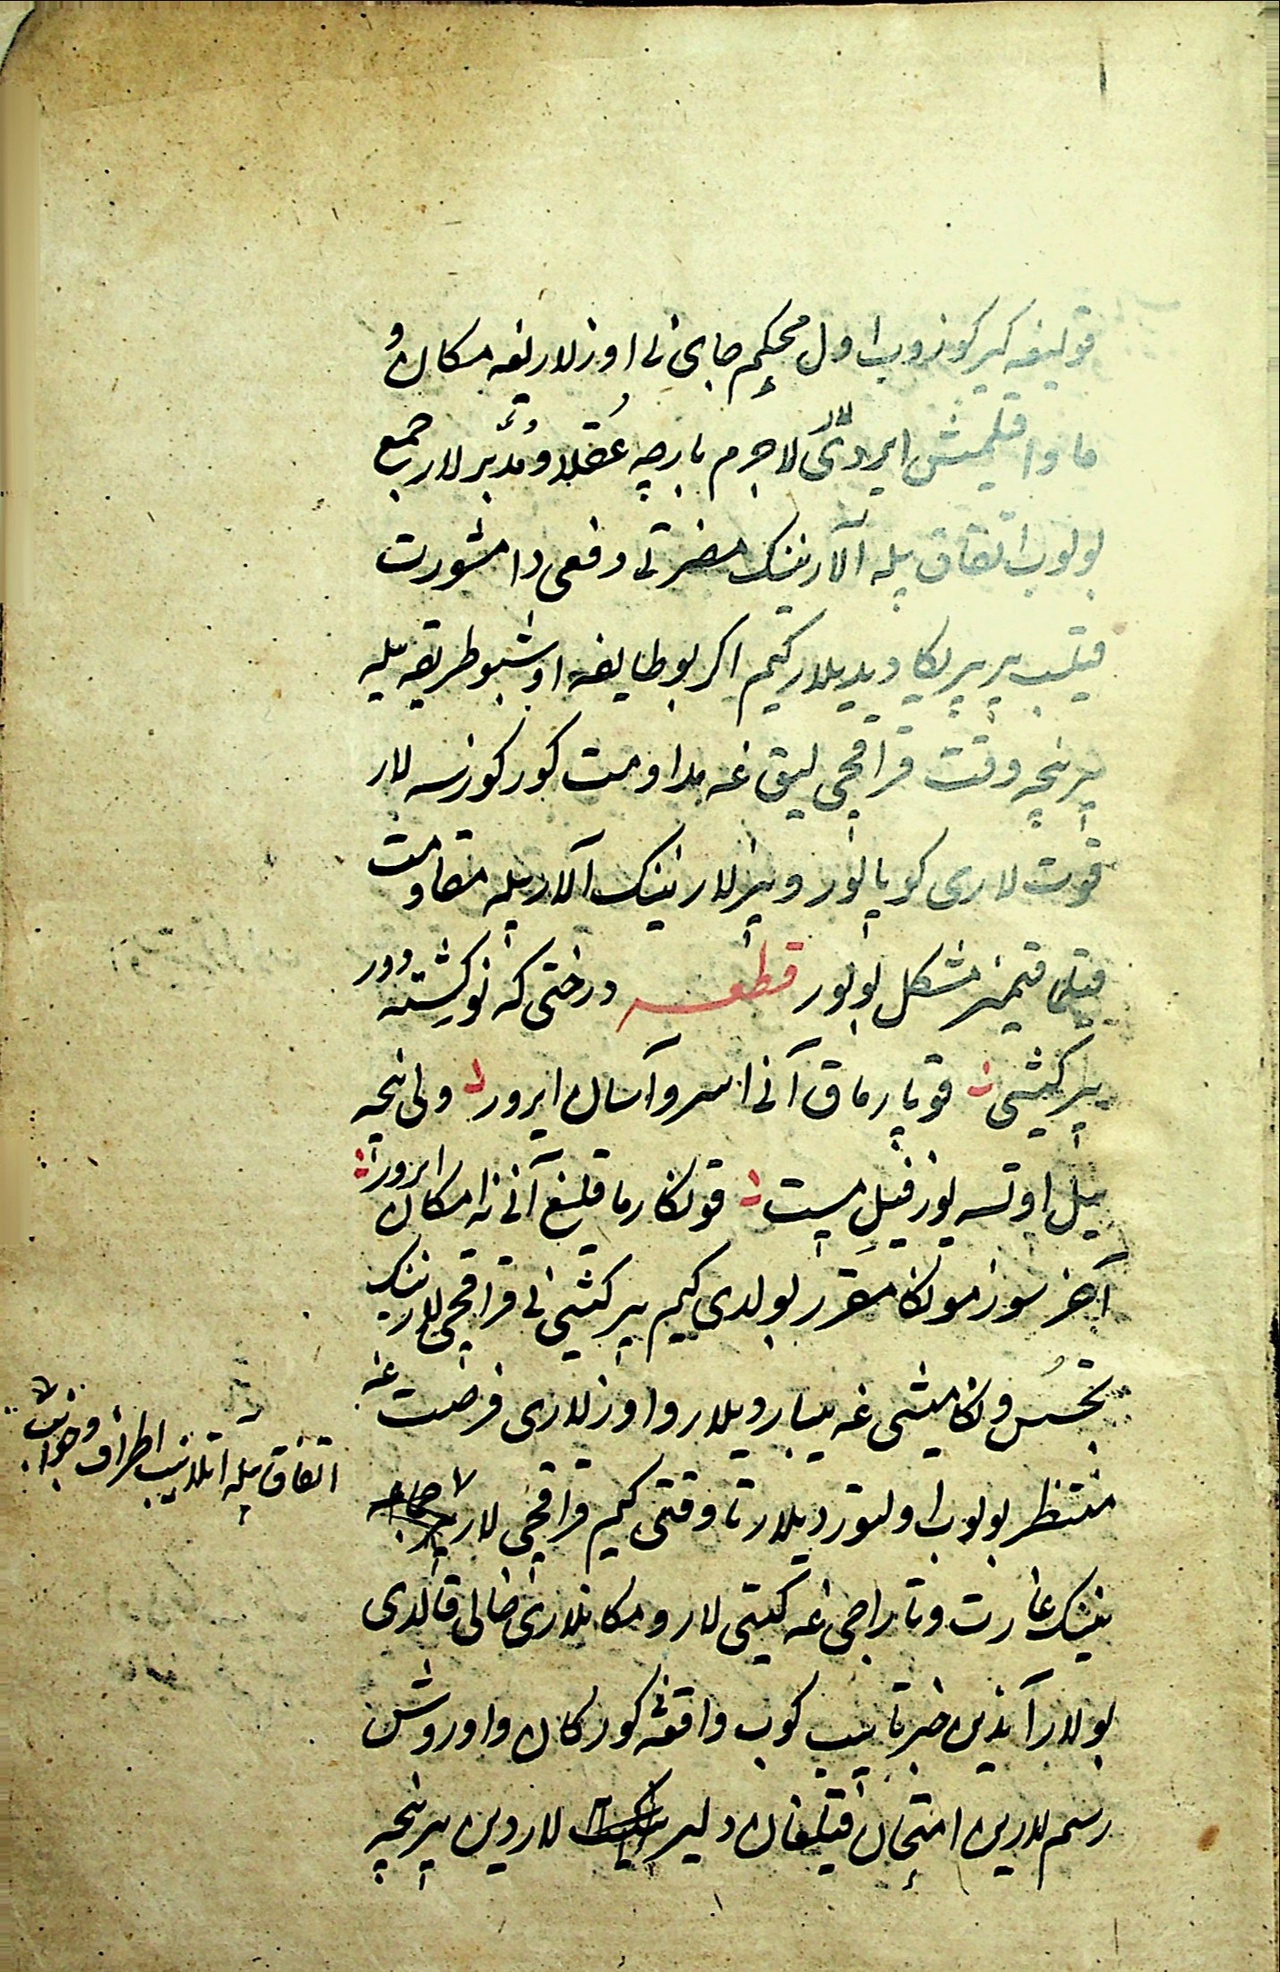 قولیغه کیرکوزوب اول محکم جای نی اوزلاریغه مکان و
ماوا قیلمیش ایردی لار لاجرم بارچه عقلا و مدبر لار جمع
بولوب اتفاق بیله آلارنینک مضرتی دفعی دا مشورت
قیلیب بیر بیریکا دیدیلار کیم اکر بو طایفه اوشبو طریقه بیله
بیر نچه وقت قراقچی لیق غه مداومت کورکوزسه لار
قوت لاری کوپ بولور و بیزلار نینک آلار بیله مقاومت
قیلماقیمیز مشکل بولور قطعه درختی که نو کیشته دور
بیر کیشی قوپارماق آنی اسرو آسان ایرور ولی نچه
ییل اوتسه یوز فیل مست قولکارماقلیغ آنی نه امکان ایرور
آخر سوز مونکا مقرر بولدی کیم بیر کیشی نی قراقچی لار نینک
تجسس و نکامیشی غه ییباردیلار و اوزلاری فرصت غه
منتظر بولوب اولتوردیلار تا وقتی کیم قراقچی لار
اتفاق بیله اتلانیب اطراف و جوانب
نینک غارت و تاراجی غه کیتی لار و مکانلاری خالی قالدی
بولار آندین خبر تاپیب کوب واقعه کورکان و اوروش
رسم لارین امتحان قیلغان دلیر لاردین بیر نچه